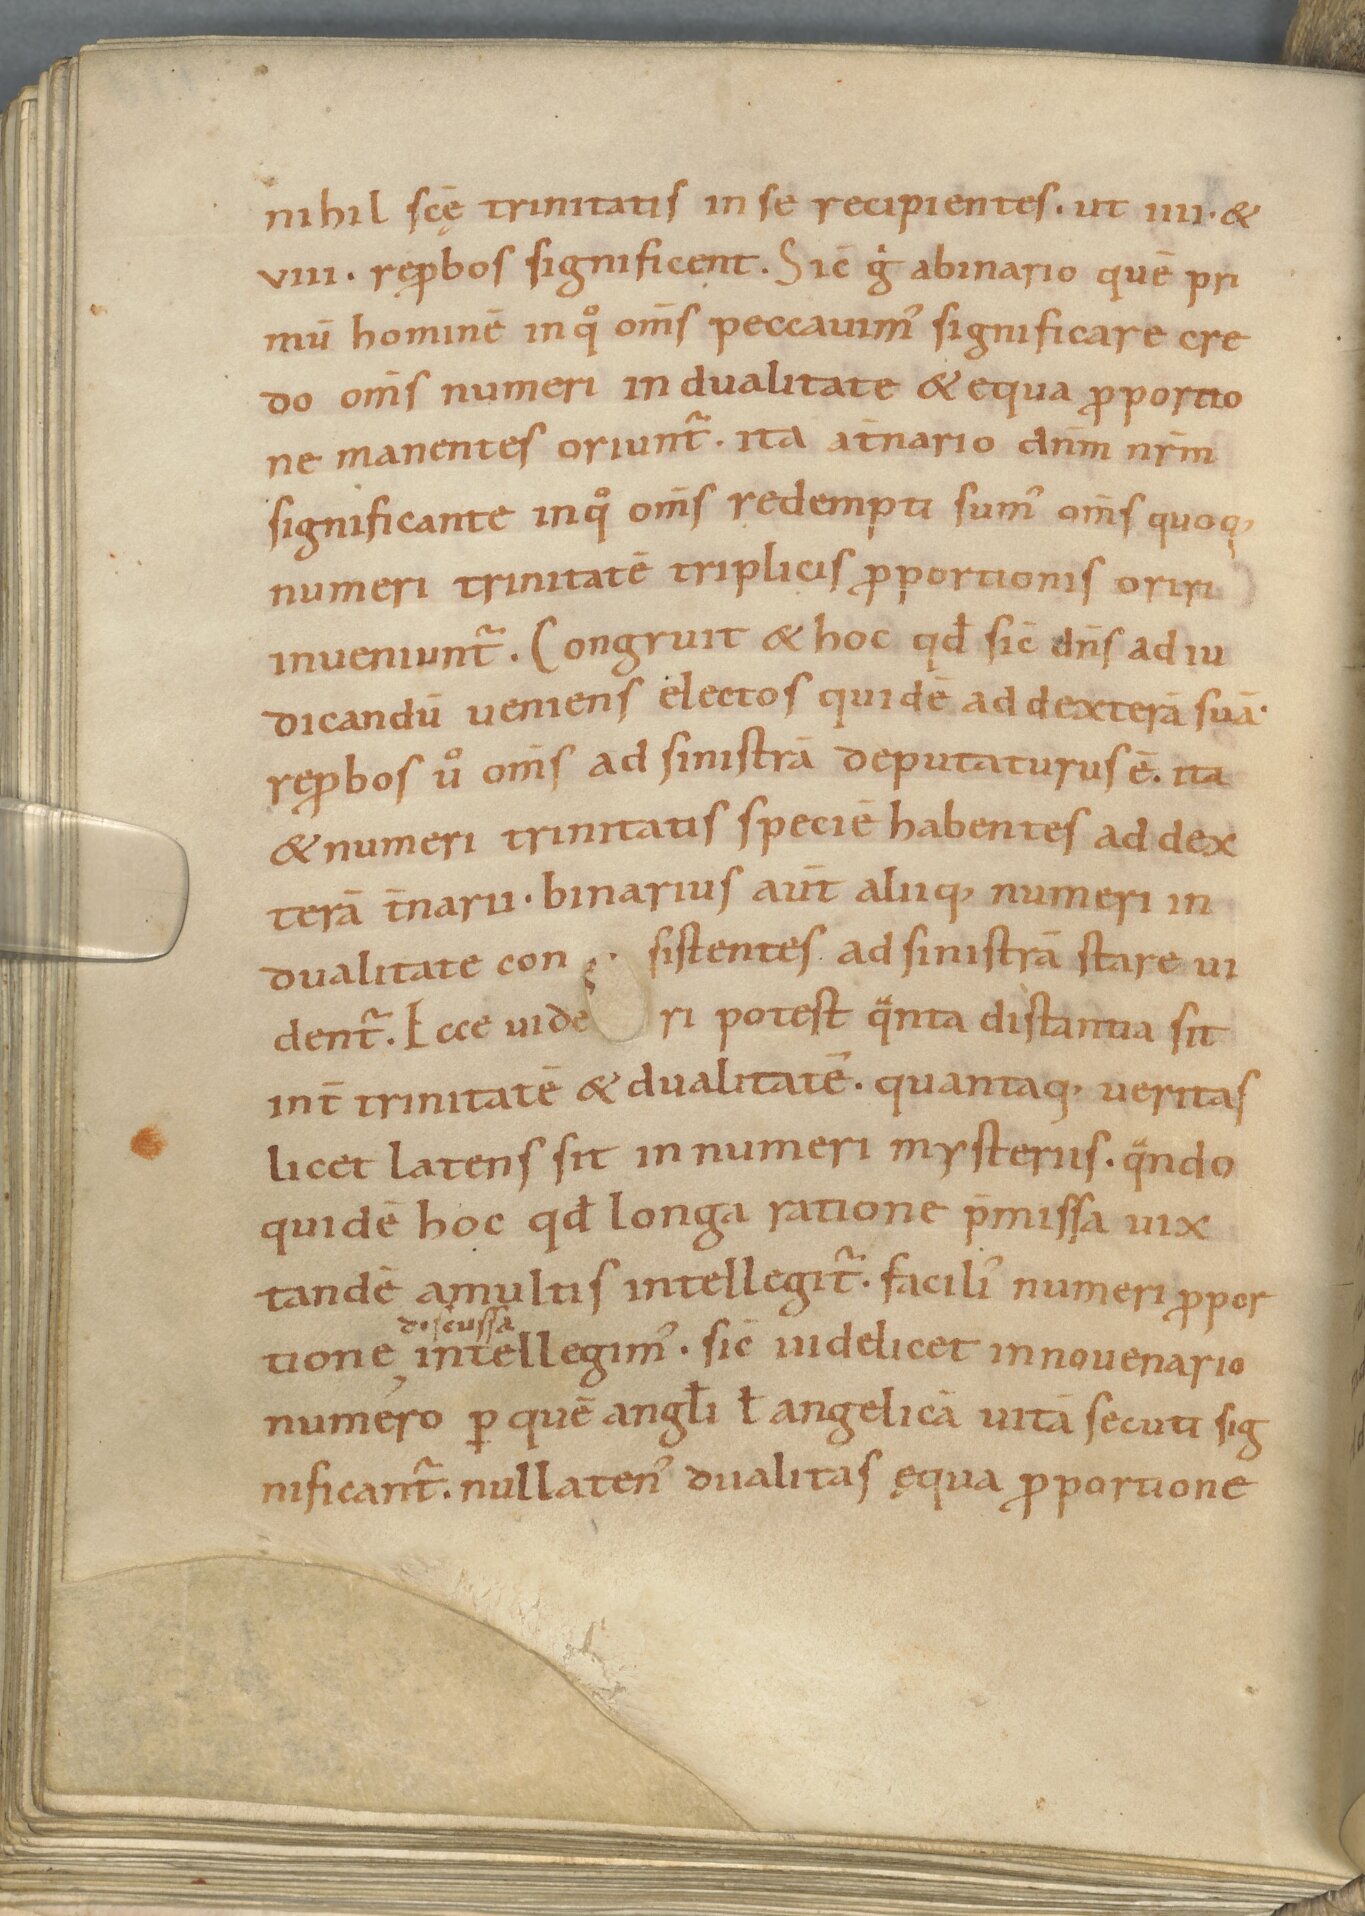 nihil scę̄ trinitatis in se recipientes. ut iiii. &
viii. reꝓbos significent. Sic̄ gͥ abinario quē pri
mū hominē inqͦ om̄s peccauimꝰ significare cre
do om̄s numeri in dualitate & equa ꝓportio
ne manentes oriunt᷑. ita at̄nario dn̄m nr̄m
significante inqͦ om̄s redempti sumꝰ om̄s quoq,
numeri trinitatē triplicis ꝓportionis oriri
inueniunt᷑. Congruit & hoc qđ sic̄ dn̄s ad iu
dicandū ueniens electos quidē ad dexterā suā.
reꝓbos uͦ om̄s ad sinistrā deputaturus ē. ita
& numeri trinitatis speciē habentes ad dex
terā t̄narii. binarius aut̄ aliiq, numeri in
dualitate con sistentes ad sinistrā stare ui
dent᷑. Ecce uide ri potest qᷓnta distantia sit
int̄ trinitatē & dualitatē. quantaq, ueritas
licet latens sit in numeri mysteriis. qᷓndo
quidē hoc qđ longa ratione p̄missa uix
tandē amultis intellegit᷑. faciliꝰ numeri ꝓpor
discussa
tione, intellegimꝰ. sic̄ uidelicet in nouenario
numero ꝑ quē angłi ł angelicā uitā secuti sig
nificant᷑. nullatenꝰ dualitas ęqua ꝓportione